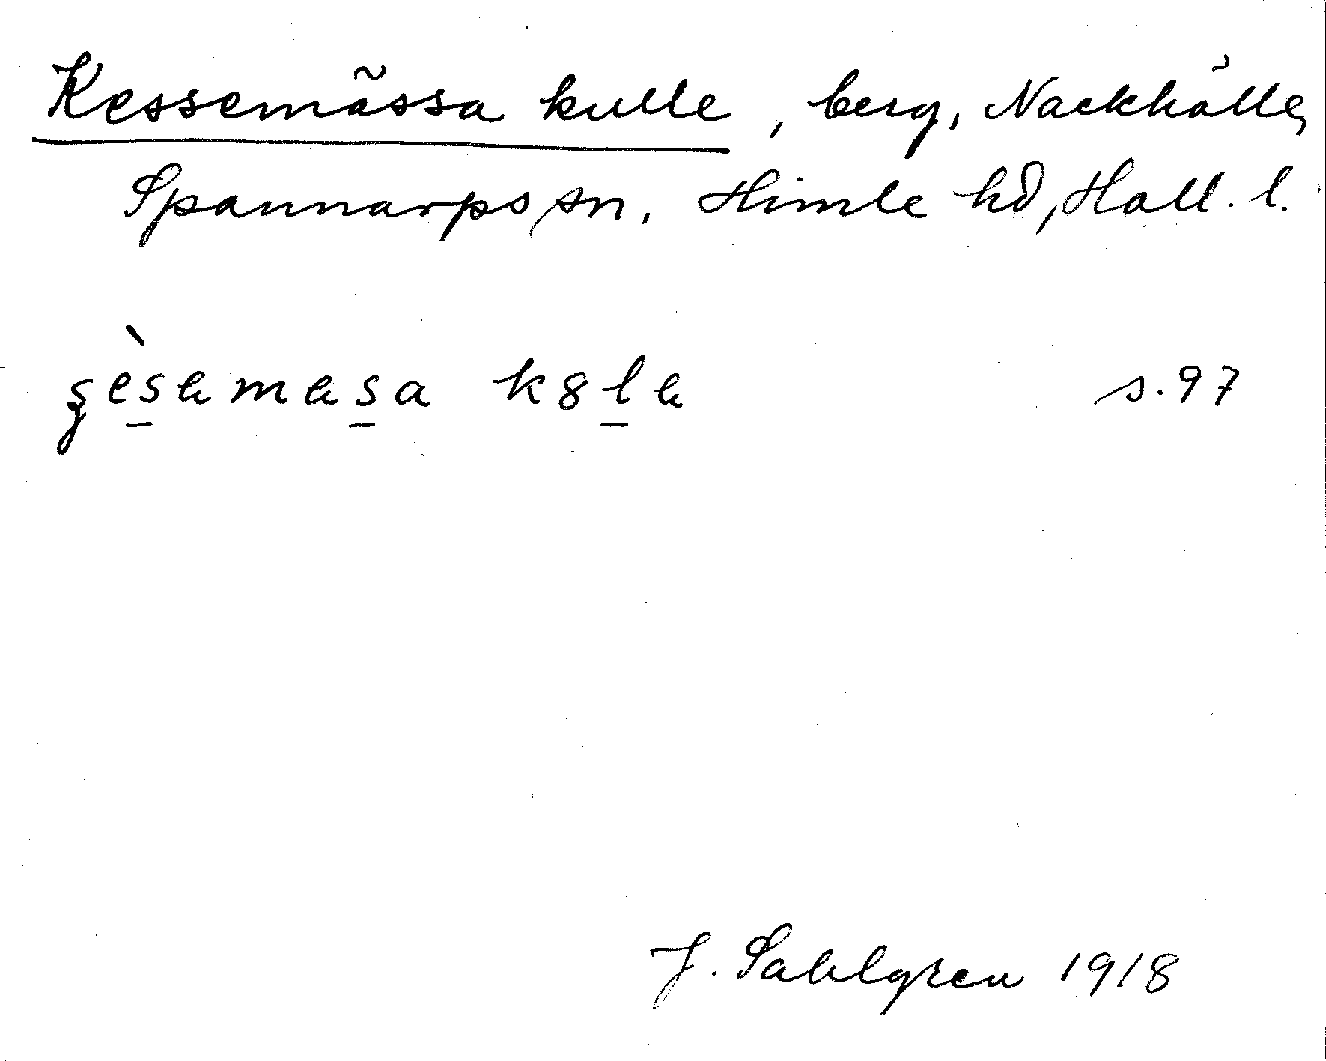 Kessemässa kulle, berg, Nackhälle,
Spannarps sn, Himle hd, Hall. l.
s. 97
J. Sahlgren 1918